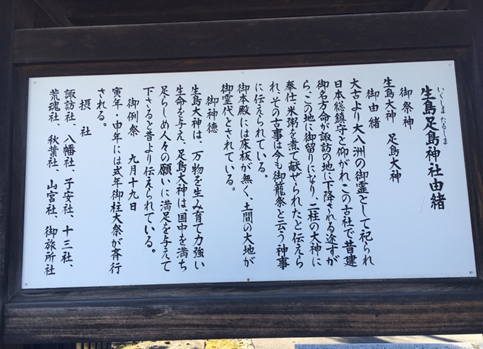 いくしま たるしま
生島足島神社由緒
御祭神
生島大神 足島大神
御由緒
太古より大八洲の御霊として祀られ
日本総鎮守と仰がれこの古社で昔建
御名方命が諏訪の地に下降される途すが
ら、この地に御留りになり、二柱の大神に
奉仕し米粥を煮て献ぜられたと伝えら
れ、その古事は今も御籠祭と云う神事
に伝えられている。
御本殿には床板が無く、土間の大地が
御室代とされている。
御神徳
生島大神は、万物を生み育て力強い
生命を与え、足島大神は国中を満ち
足らしめ人々の願いに満足を与えて
下さると昔より伝えられている。
御例祭 九月十九日
寅年・申年には式年御柱大祭が斉行
される。
摂社
諏訪社、八幡社、子安社、十三社、
荒魂社、秋葉社、山宮社、御旅所社